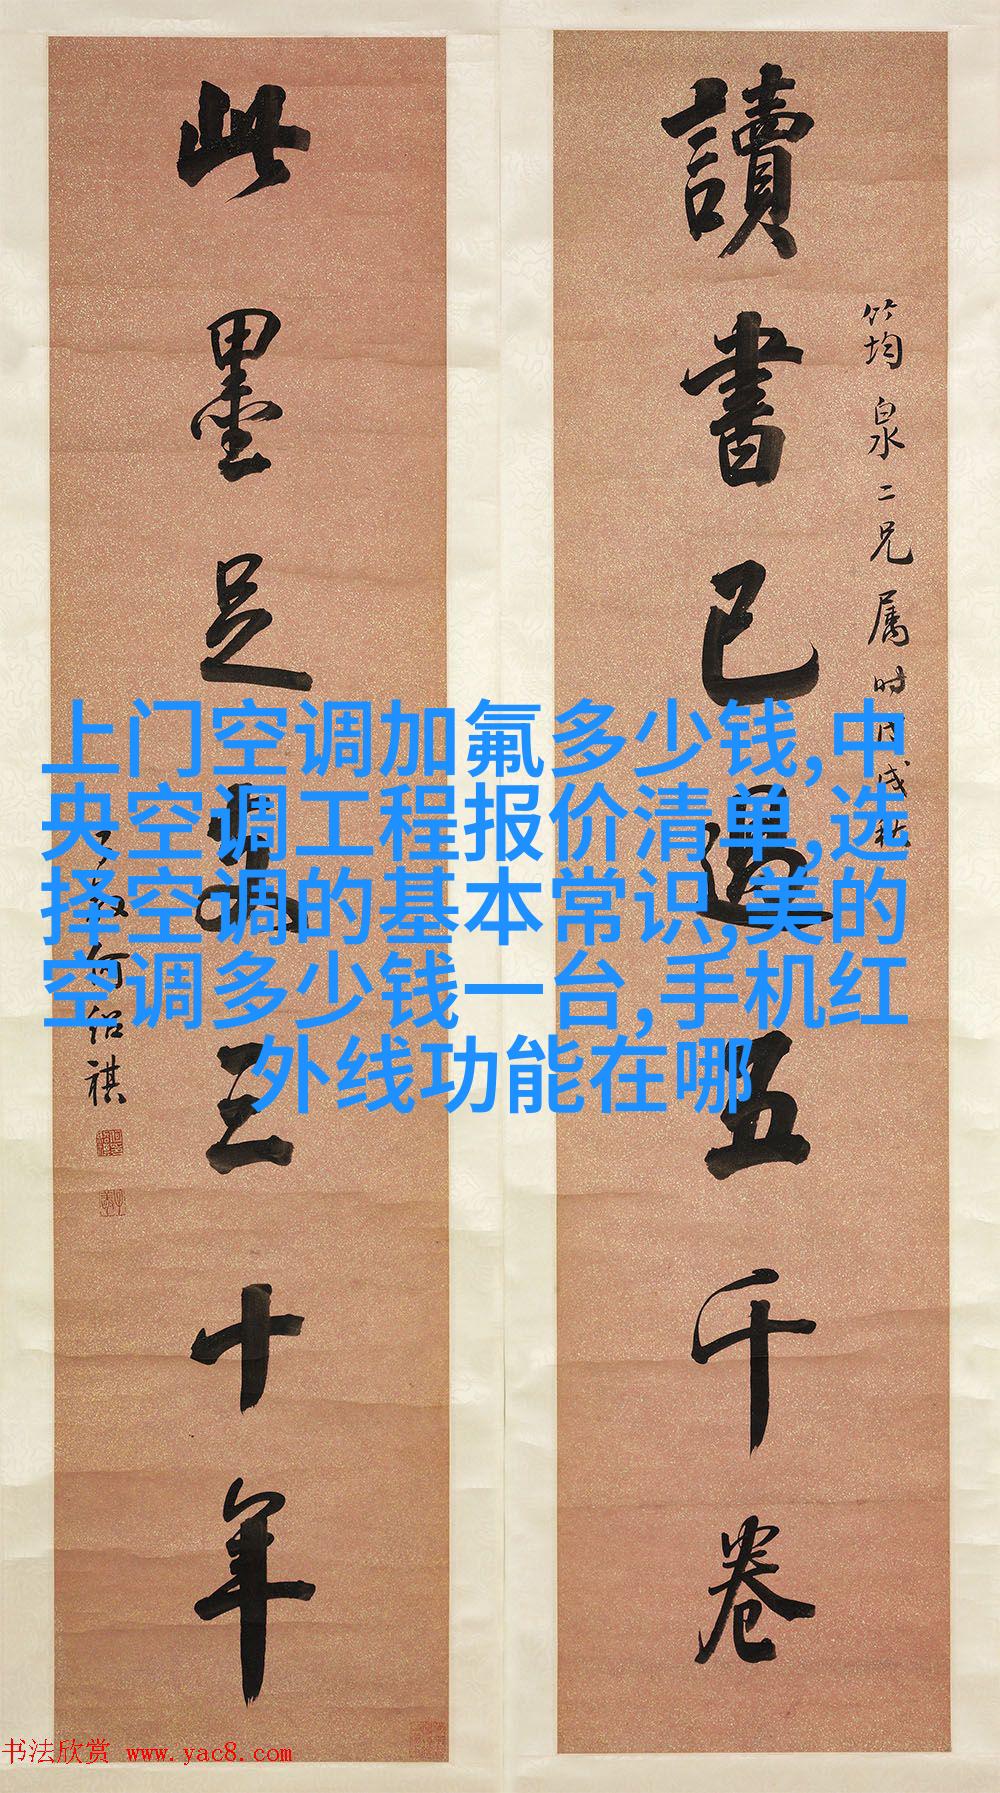 讀書已過五千卷
竹均泉二兄属時戊戌秋
此墨足用三十年
何绍祺
上门空调加氟多少钱,中
央空调工程报价清单,选
择空调的基本常识,美的
空调多少钱一台,手机红
外线功能在哪
书法欣赏 www.yac8.com